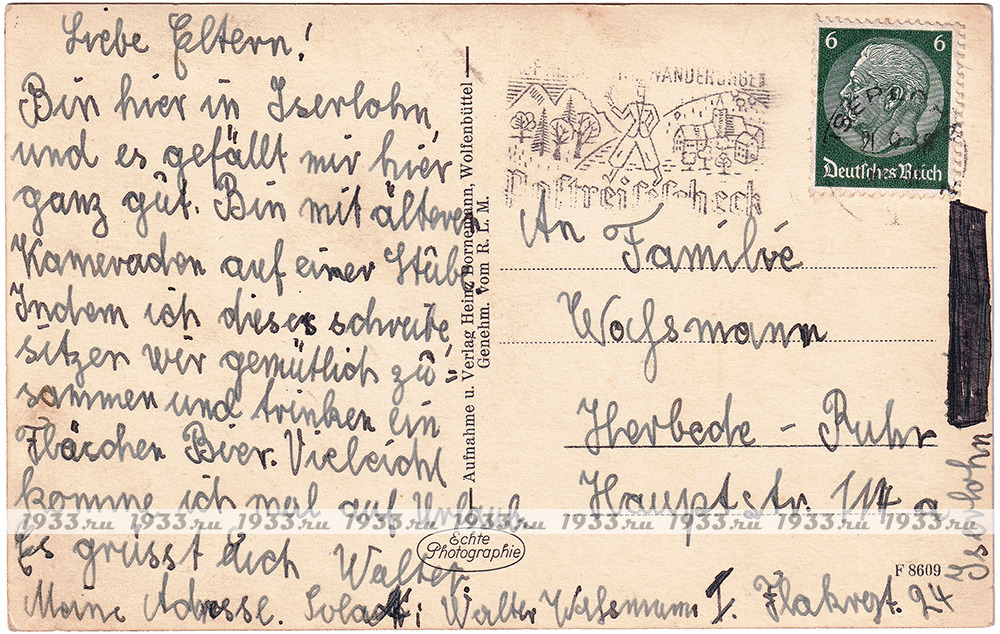 Liebe Eltern!
Bin hier in Iserlohn
und es gefällt mir hier
ganz gut. Bin mit älteren
Kameraden auf einer Stube.
Indem ich dieses schreibe,
sitzen wir gemütlich zu-
sammen und trinken ein
Fläschen Bier. Vieleicht
komme ich mal auf Urlaub.
Es grüsst Euch Walter
Meine Adresse. Soldat: Walter Wahsmann I. Flakregt. 24
Iserlohn
Aufnahme u. Verlag Heinz Bornemann, Wolfenbüttel
Genehm. vom R. L. M.
WANDERUNGEN
Postreisescheck
6 6
Deutsches Reich
An
Familie
Wahsmann
Herbede - Ruhr
Hauptstr. 114 a
1933.ru 1933.ru 1933.ru 1933.ru 1933.ru 1933.ru 1933.ru 1933.ru 1933.ru
Echte
Photographie
F 8609